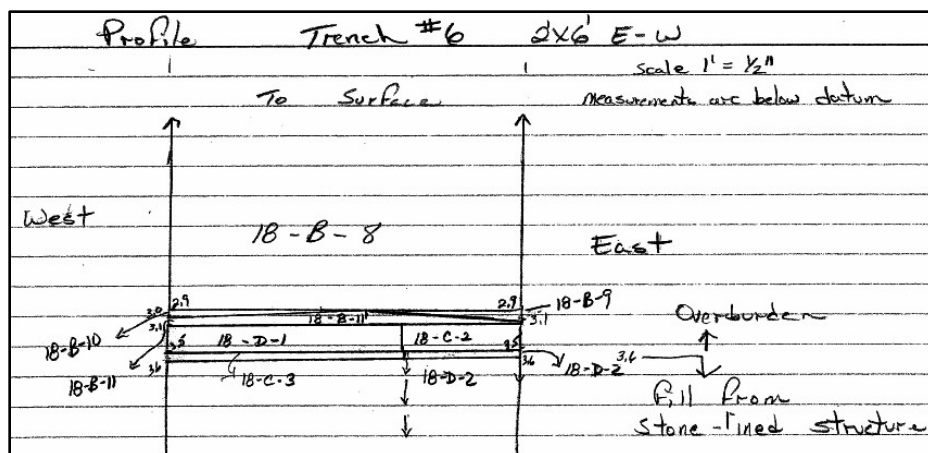 Profile Trench #6 2'x6' E-W
Scale 1' = 1/2"
To Surface Measurements are below datum
West
18-B-8
East
2.9 2.9 18-B-9
3.0 3.1
18-B-11 Overburden
3.1
18-B-10 3.5 18-D-1 18-C-2 3.5
3.6 3.6 18-D-2 3.6
18-B-11 18-C-3 18-D-2
Fill From
Stone-lined structure